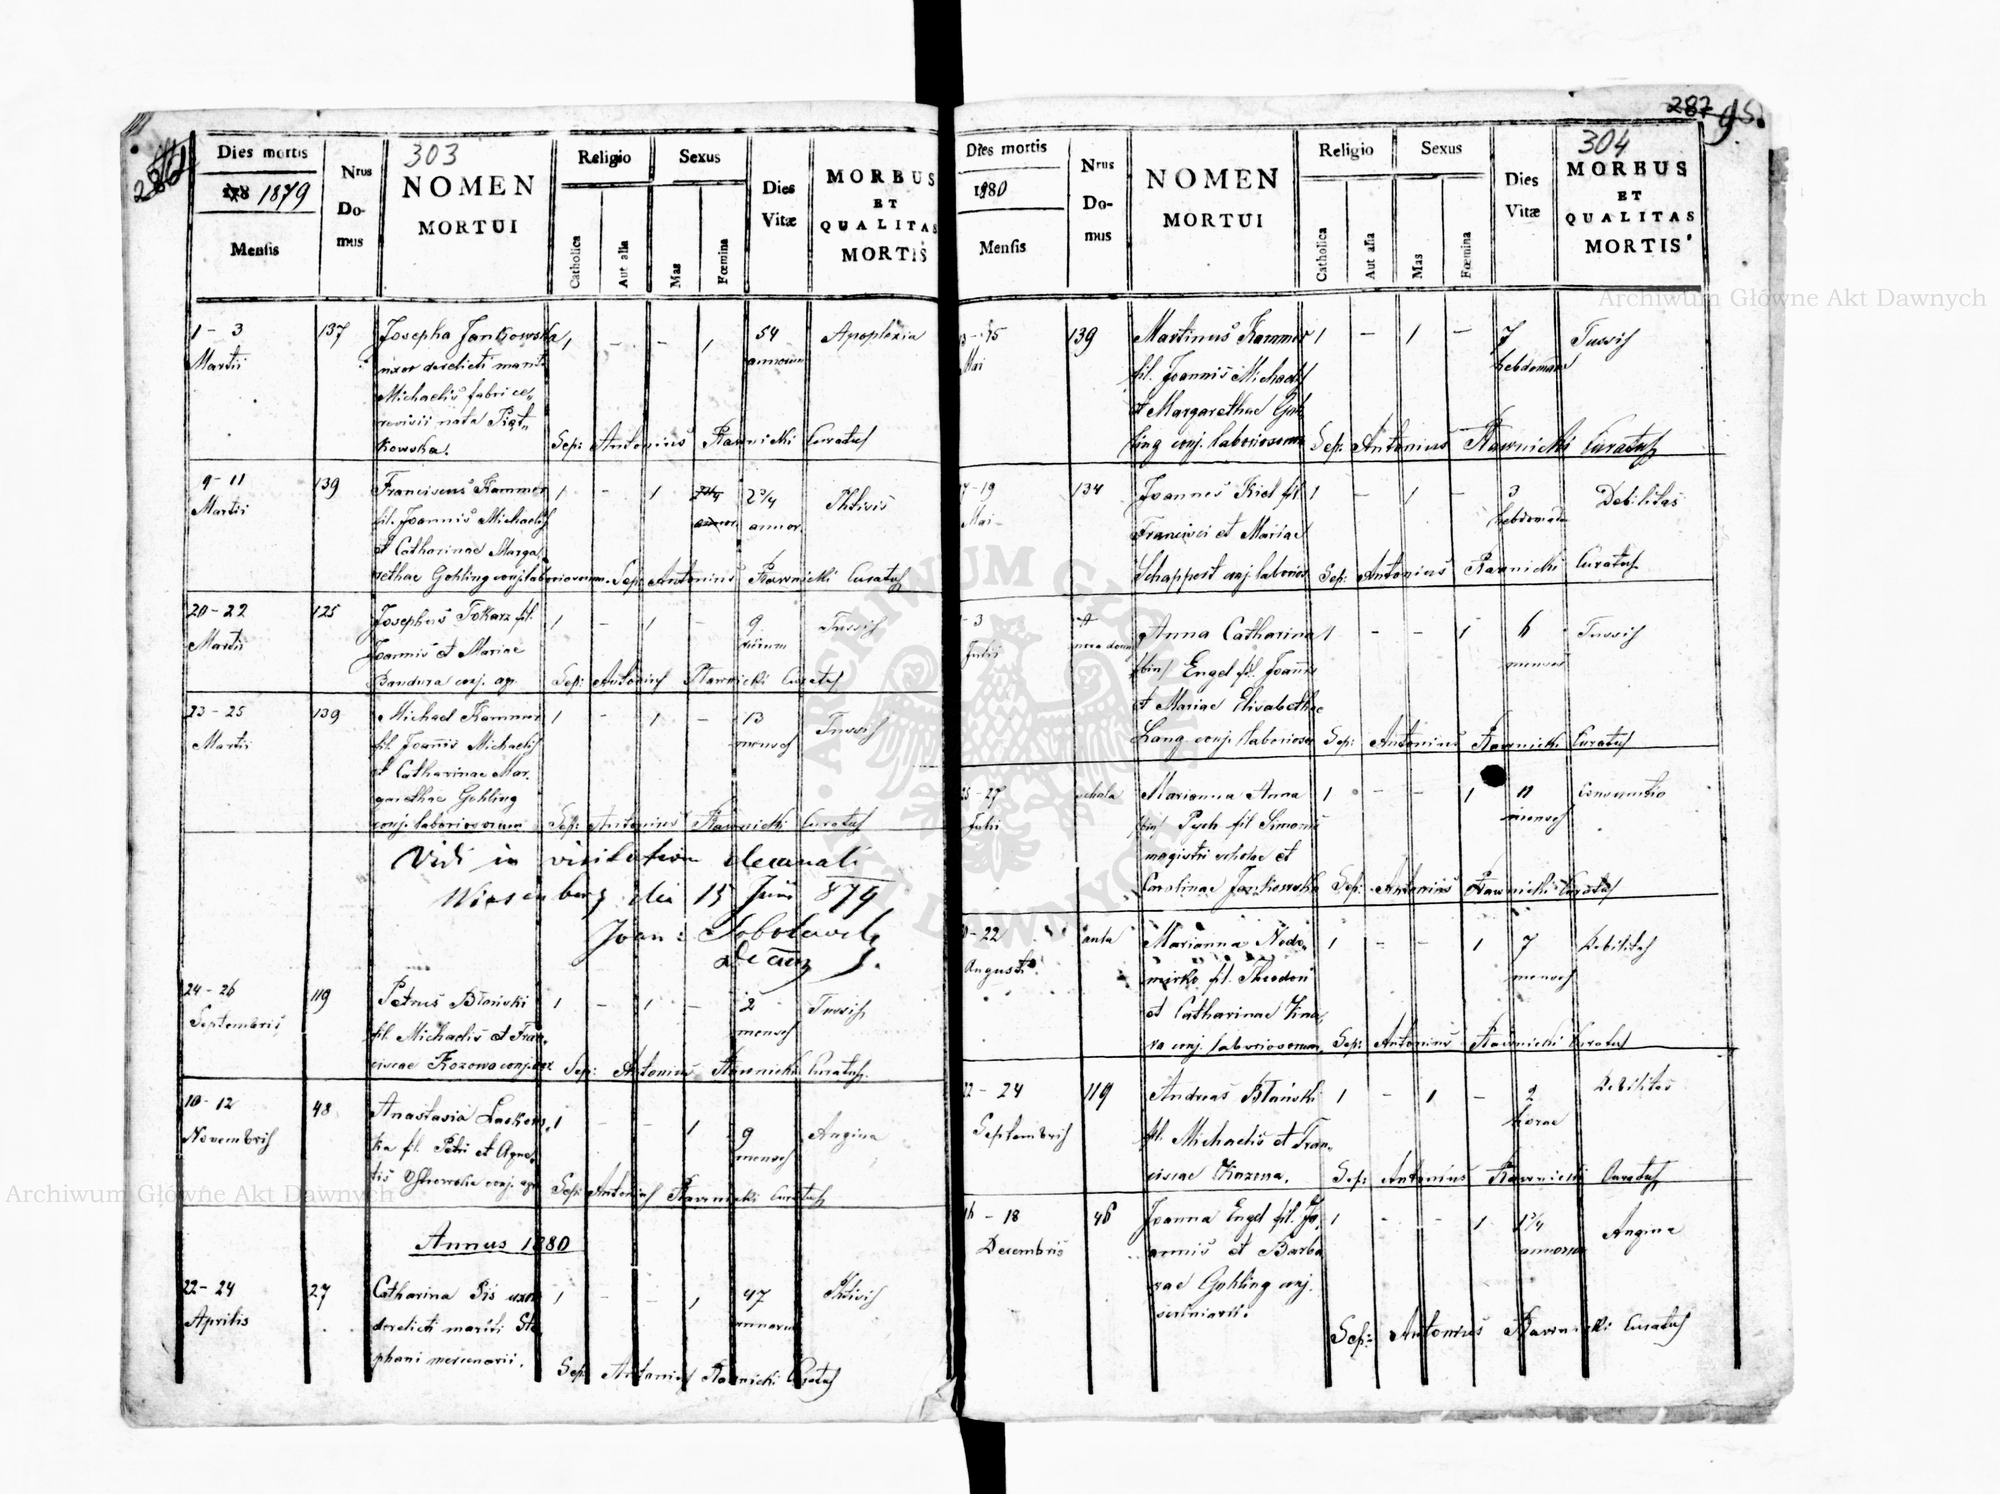 303
Dies mortis
1879
Mensis
Nrus
Do-
mus
NOMEN
MORTUI
Religio
Catholica
Aut alia
Sexus
Mas
Fœmina
Dies
Vitæ
MORBUS
ET
QUALITAS
MORTIS
1 - 3
Martii
137
Josepha Jankowska
uxor derelicti mariti
Michaelis fabri ce-
revisii nata Piąt-
kowska.
1 - - 1
54
annorum
Apoplexia
Sep: Antonius Rawnicki Curatus
9 - 11
Martii
139
Franciscus Kammer
fil. Joannis Michaelis
et Catharinae Marga
rethae Gohling conj. laboriosorum. Sep: Antonius Rawnicki Curatus
1 - 1
2 3/4
annor.
Phtisis
20 - 22
Martii
125
Josephus Tokarz fil.
Joannis et Mariae
Bandura conj. agr.
1 - 1 -
9
Tussis
Sep: Antonius Rawnicki Curatus
23 - 25
Martii
139
Michael Kammer
fil. Joannis Michaelis
et Catharinae Mar.
garethae Gohling
conj. laboriosorum
1 - 1 -
13
menses
Tussis
Sep: Antonius Rawnicki Curatus
Vidi in visitation decanali
Wiesenberg die 15 Junii 879
Joan:
24 - 26
Septembris
119
Petrus Błański
fil. Michaelis et Fran-
ciscae Kozowa conj. agr
1 - 1 -
2
menses
Tussis
Sep: Antonius Rawnicki Curatus
10 - 12
Novembris
48
Anastasia
ka fil. Petri et Agne-
tis conj. agr
1 - - 1
9
menses
Angina
Sep: Antonius Rawnicki Curatus
Annus 1880
22 - 24
Aprilis
27
Catharina Pis uxor
derelicti mariti Ste
phani mercenarii.
1 - - 1
47
annorum
Phtisis
Sep: Antonius Rawnicki Curatus
287 95.
304
Dies mortis
1880
Mensis
Nrus
Do-
mus
NOMEN
MORTUI
Religio
Catholica
Aut alia
Sexus
Mas
Fœmina
Dies
Vitæ
MORBUS
ET
QUALITAS
MORTIS
- 15
Mai
139
Martinus Kammer
fil. Joannis Michaelis
et Margarethae Goh
ling conj. laboriosorum
1 - 1 -
7
hebdomad
Tussis
Sep: Antonius Rawnicki Curatus
- 19
Mai
134
Joannes Kiel fil
Francisci et Mariae
Schappert conj. laborios
1 - 1 -
3
hebdomad
Debilitas
Sep: Antonius Rawnicki Curatus
- 3
Julii
Anna Catharina
/bin/ Engel fil. Joannis
et Mariae Elisabethae
Lang conj. laborioso
1 - - 1
6
menses
Tussis
Sep: Antonius Rawnicki Curatus
- 27
Julii
schola
Marianna Anna
/bin/ Pych fil Simonis
magistri scholae et
Carolinae Jankowska
1 - - 1
11
menses
Consumtio
Sep: Antonius Rawnicki Curatus
- 22
Augusti
Marianna Nodo-
mirko fil. Theodori
et Catharinae
conj. laboriosorum.
1 - - 1
7
menses
Debilitas
Sep: Antonius Rawnicki Curatus
- 24
Septembris
119
Andreas Błański
fil. Michaelis et Fran-
ciscae Kozowa.
1 - 1 -
2
horae
Debilitas
Sep: Antonius Rawnicki Curatus
16 - 18
Decembris
46
Joanna Engel fil. Jo.
annis et Barba
rae Gohling conj.
1 - - 1
1 3/4
annorum
Angina
Sep: Antonius Rawnicki Curatus
Archiwum Główne Akt Dawnych
Archiwum Główne Akt Dawnych
ARCHIWUM GŁÓWNE AKT DAWNYCH